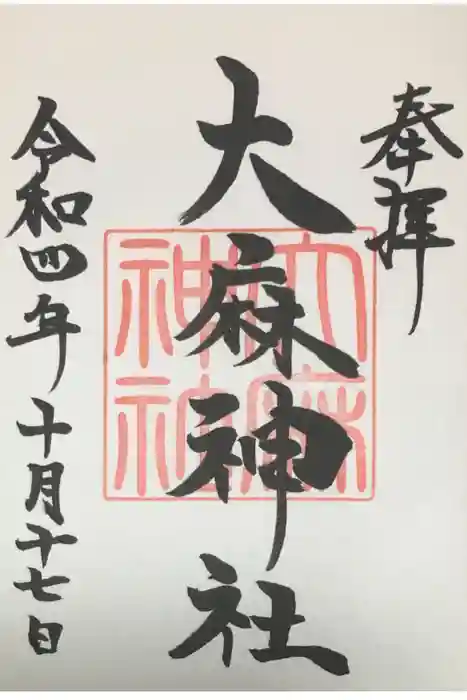 奉拝
大麻神社
大麻神社
令和四年十月十七日